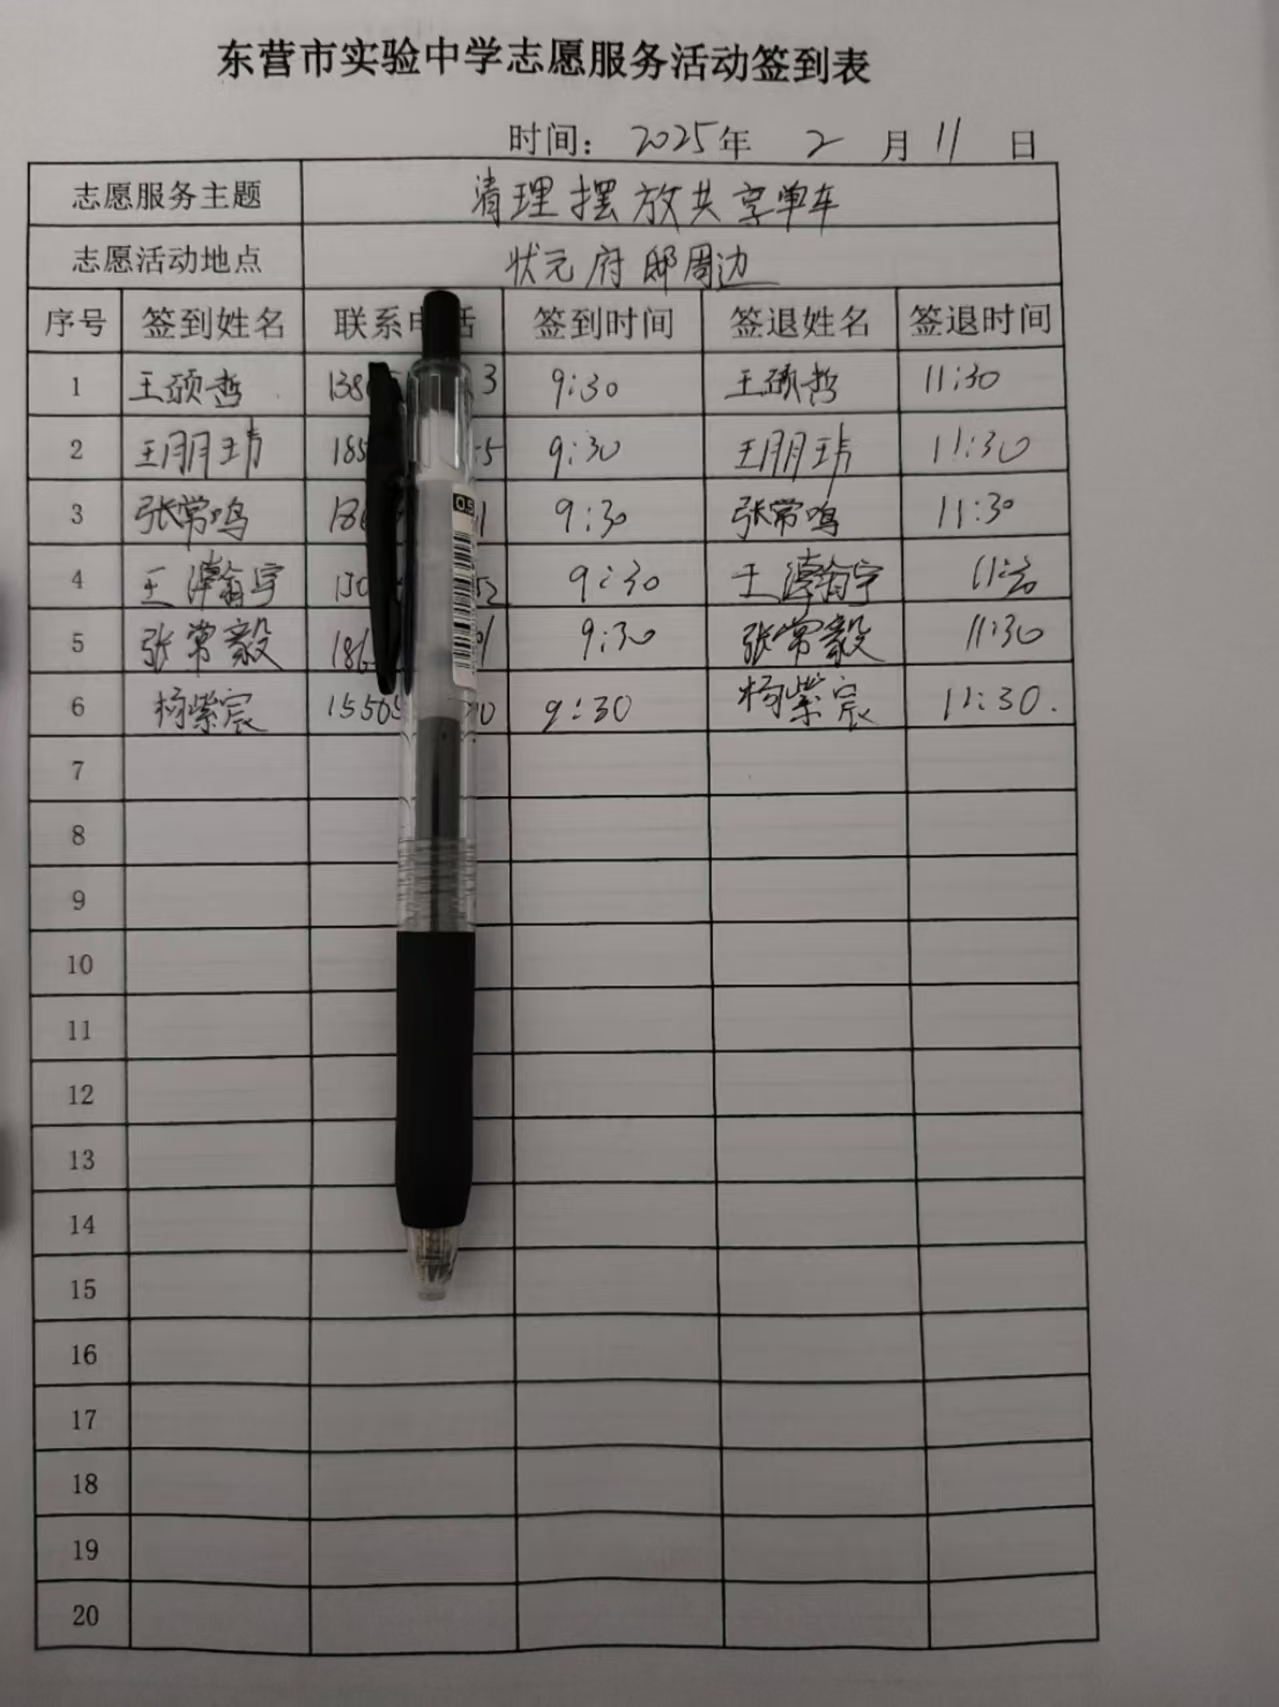 东营市实验中学志愿服务活动签到表
时间: 2025年 2 月 11 日
志愿服务主题 清理摆放共享单车
志愿活动地点 状元府邸周边
序号 签到姓名 联系电话 签到时间 签退姓名 签退时间
1 王硕哲 138 3 9:30 王硕哲 11:30
2 王朋玮 185 5 9:30 王朋玮 11:30
3 张常鸣 186 1 9:30 张常鸣 11:30
4 王瀚宇 130 52 9:30 王瀚宇 11:30
5 张常毅 186 91 9:30 张常毅 11:30
6 杨紫宸 15565 0 9:30 杨紫宸 11:30.
7
8
9
10
11
12
13
14
15
16
17
18
19
20
0.5